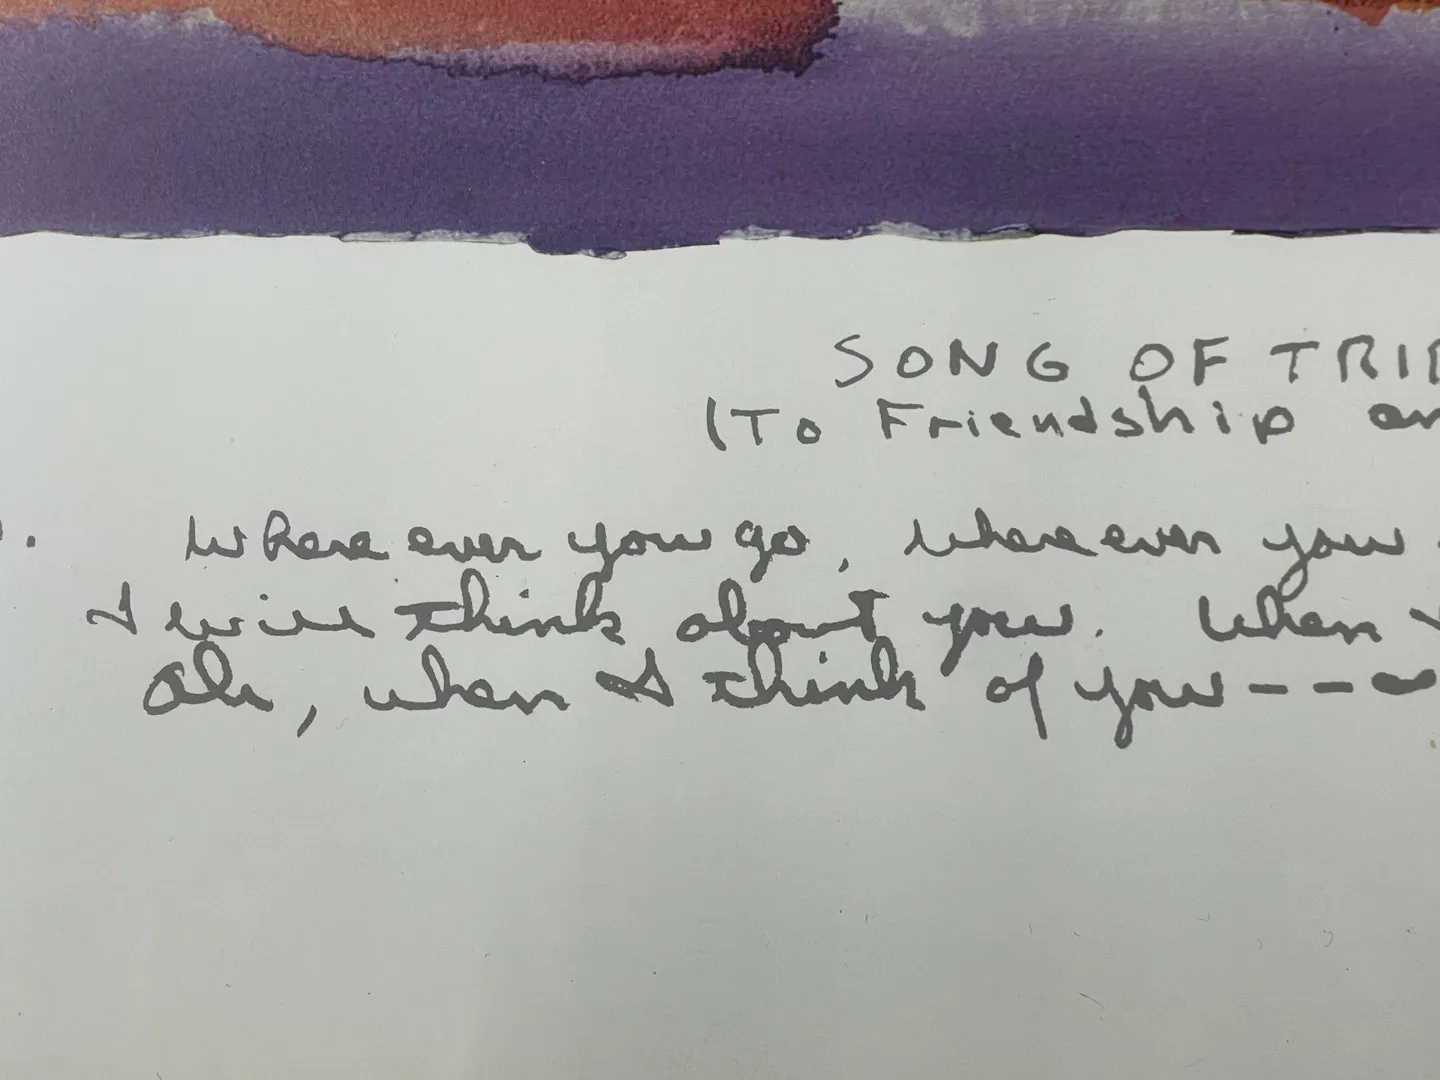 SONG OF TRIB
(To Friendship an
Where ever you go, where ever you
I will think about you. When I
Oh, when I think of you---